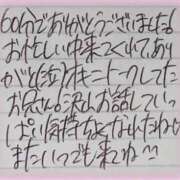 60分でありがとうございました!
お忙しい中来てくれてあり
がと(金)トークしてた
お兄さん沢山お話していっ
ぱい気持なくなしたねし
またいつでも来てね^^